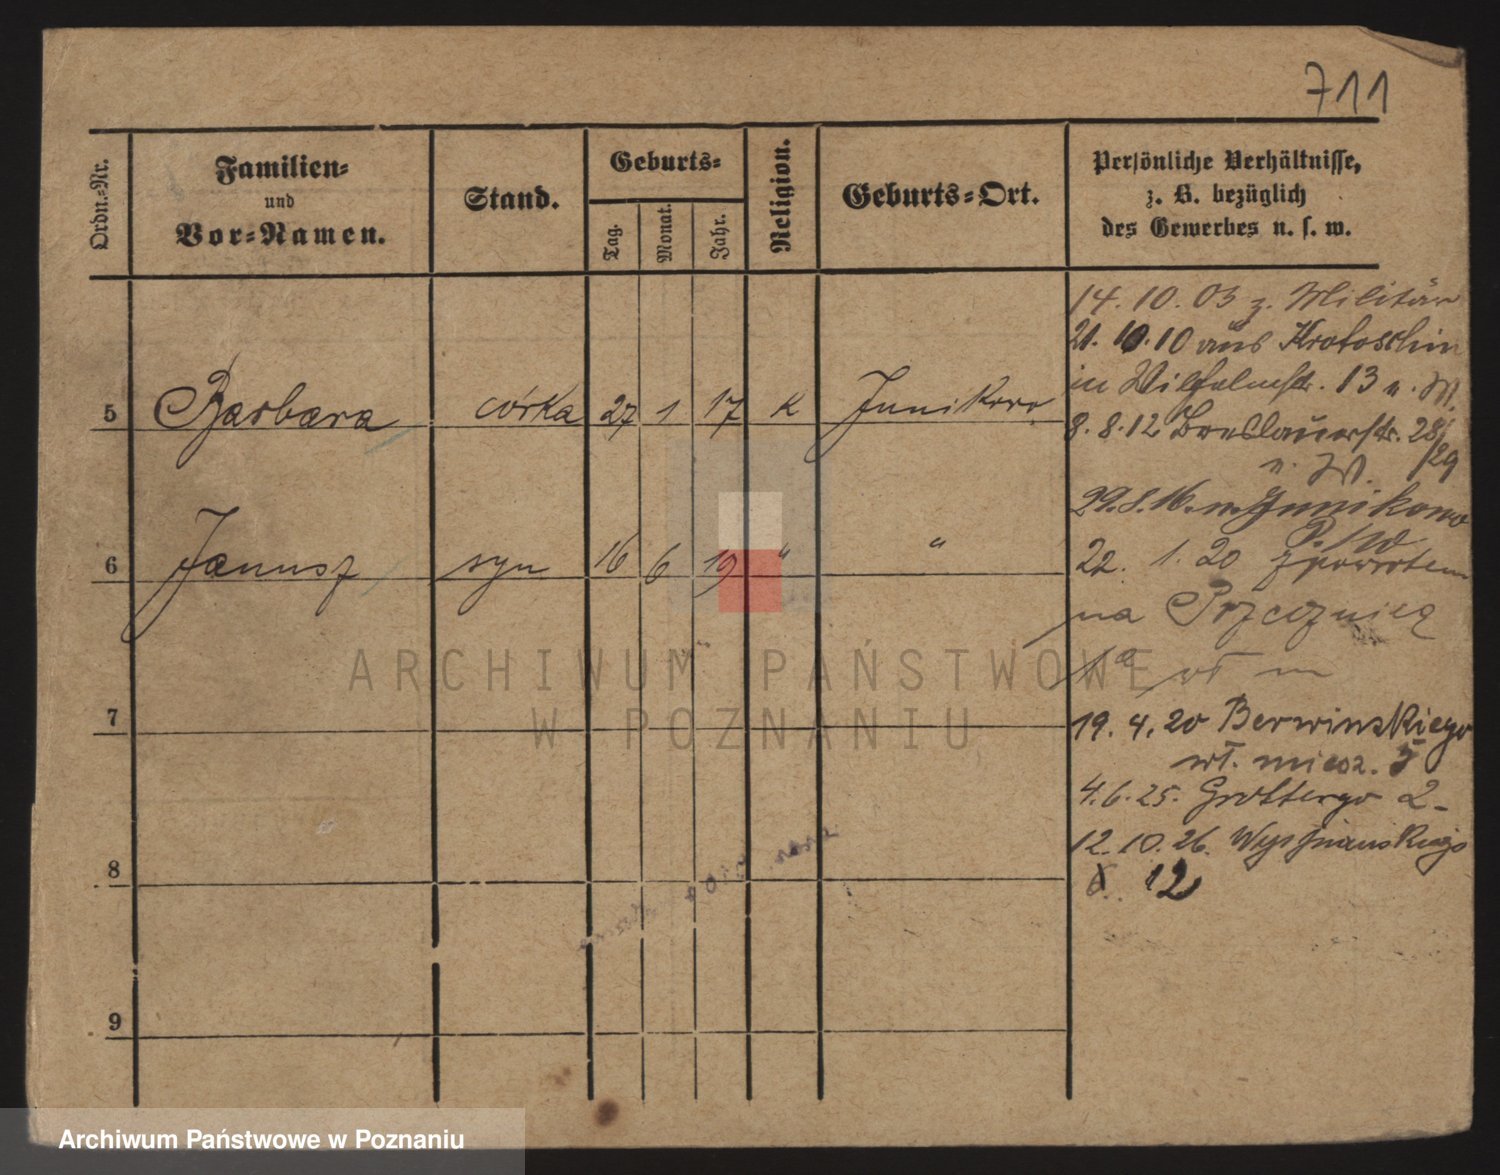 711
Ordn.-Nr.
Familien-
und
Vor-Namen.
Stand.
Geburts-
Tag.
Monat.
Jahr.
Religion.
Geburts-Ort.
Persönliche Verhältnisse,
z. B. bezüglich
des Gewerbes u. s. w.
14. 10. 03 z. Militär
21. 10. 10 aus Krotoschin
in Wilhelmstr. 13 n. W.
5 Barbara córka 27 1 17 K Junikowo
8. 8. 12 Breslauerstr. 28/29
n. W.
29. 8. 16. n. Junikowo
P./W
6 Janusz syn 16 6 19 " "
22. 1. 20 z powrotem
na
19. 4. 20 Berwinskiego
7
wł. miesz. 5
4. 6. 25. Grottergo 2
12. 10. 26. Wyspianskiego
8
12
9
ARCHIWUM PAŃSTWOWE
W POZNANIU
Archiwum Państwowe w Poznaniu